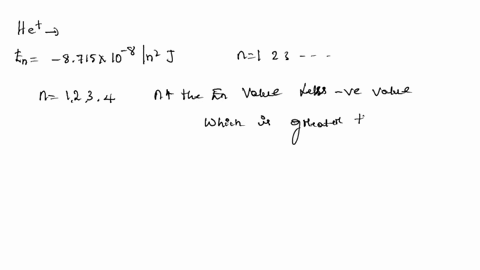 He⁺ →
En = -8.715 x 10⁻⁸ | n² J n=1 2 3 ----
n= 1,2,3.4 n↑ the En value less -ve value
which is greator t